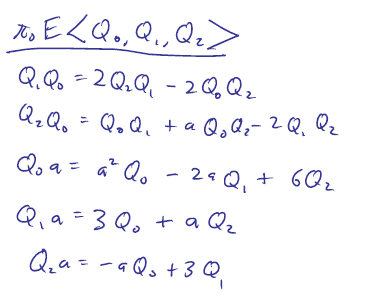 π₀ E<Q₀, Q₁, Q₂>
Q₁Q₀ = 2Q₂Q₁ - 2Q₀Q₂
Q₂Q₀ = Q₀Q₁ + aQ₀Q₂ - 2Q₁Q₂
Q₀a = a²Q₀ - 2aQ₁ + 6Q₂
Q₁a = 3Q₀ + aQ₂
Q₂a = -aQ₀ + 3Q₁